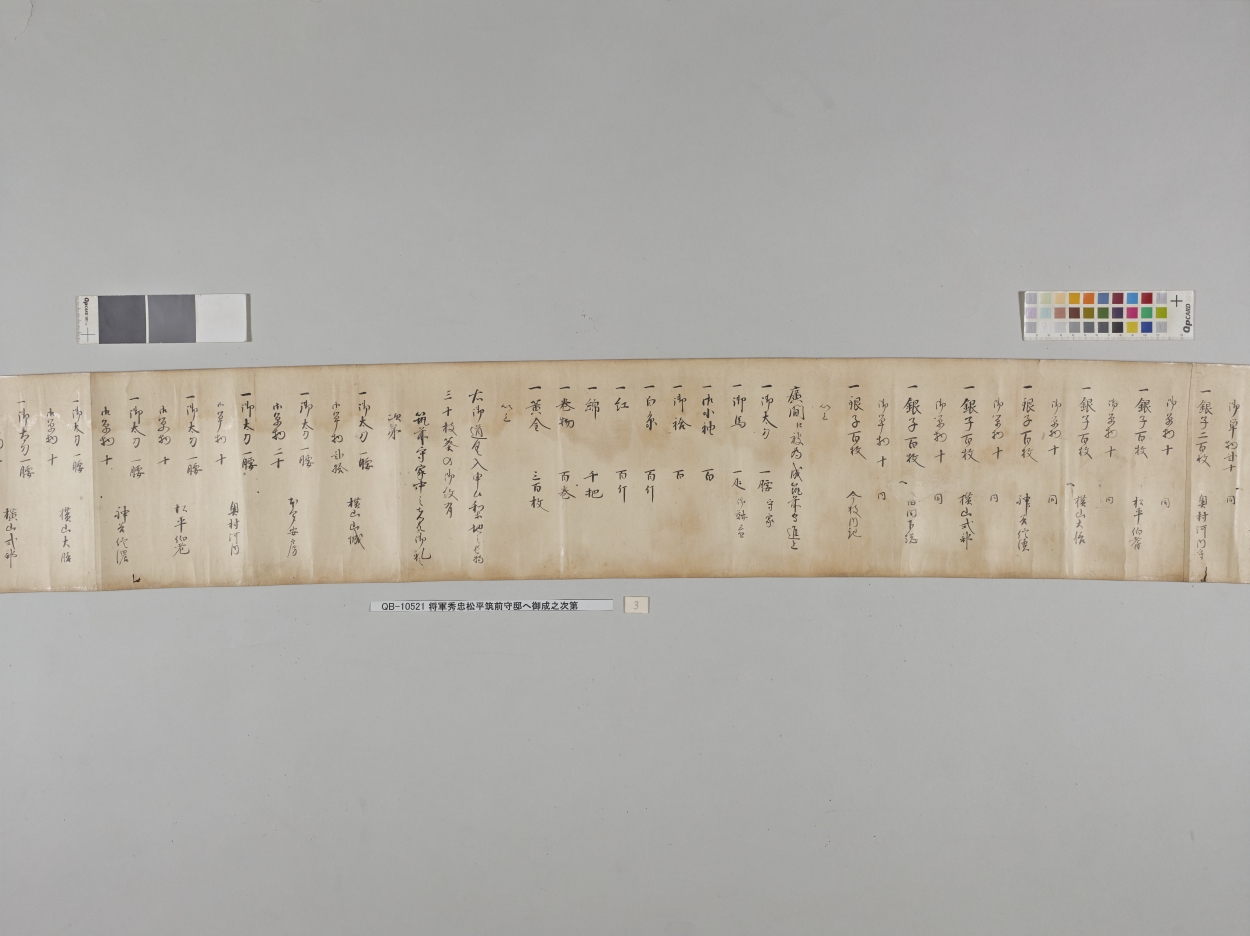 御単物 廿 同
一銀子二百枚 奥村河内守
御単物 十 同
一銀子百枚 松平伯耆
御単物 十 同
一銀子百枚 横山大膳
御単物 十 同
一銀子百枚
御単物 十 同
一銀子百枚 横山式部
御単物 十 同
一銀子百枚
御単物 十 同
一銀子百枚
以上
廣間江被為成筑前守進上
一御太刀 一腰 守家
一御馬 一疋
一御小袖 百
一御袷 百
一白糸 百斤
一紅 百斤
一綿 千把
一巻物 百巻
一黄金 三百枚
以上
大御道具入申
三十枚葵の御紋有
筑前守家中之者共御礼
次第
一御太刀 一腰 横山山城
御単物 廿
一御太刀 一腰 本多安房
御単物 二十
一御太刀 一腰 奥村河内
御単物 十
一御太刀 一腰 松平伯耆
御単物 十
一御太刀 一腰
御単物 十
一御太刀 一腰 横山大膳
御単物 十
一御太刀 一腰 横山式部
QB-10521 将軍秀忠松平筑前守邸へ御成之次第
3
QpCARD
QpCARD